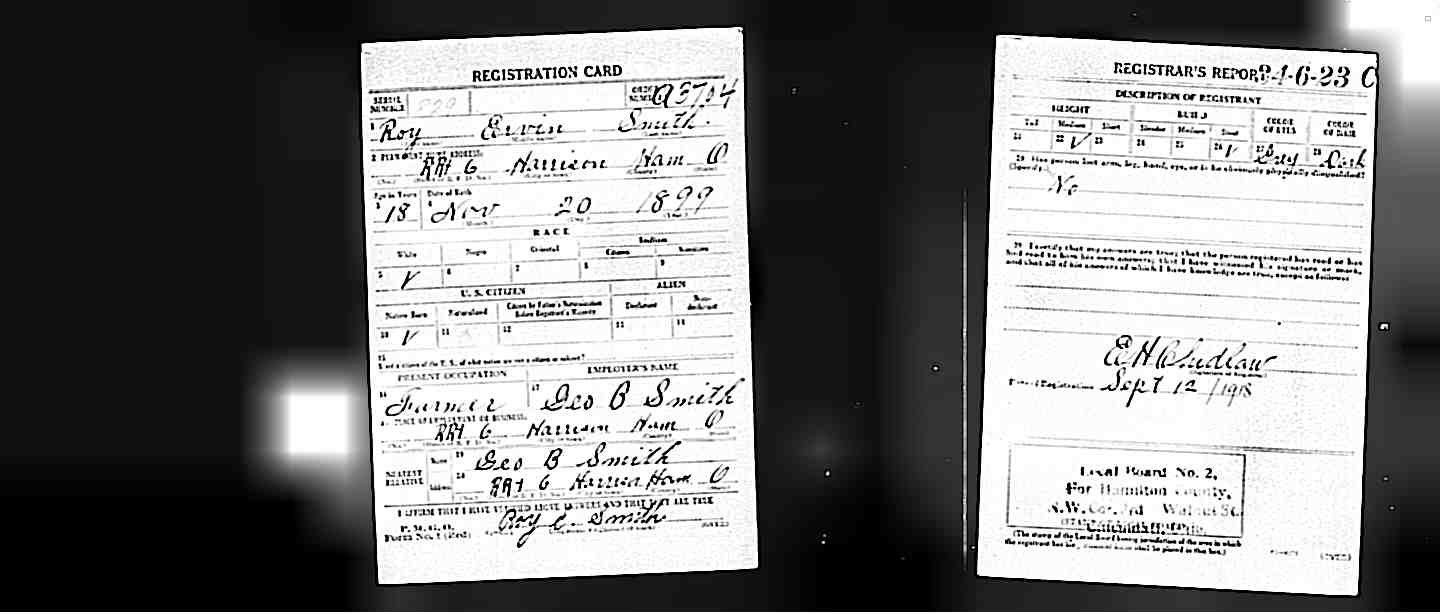 REGISTRATION CARD
SERIAL NUMBER
ORDER NUMBER A3704
1 Roy Ervin Smith.
2 PERMANENT HOME ADDRESS:
RR1 6 Harrison Ham O
Age in Years Date of Birth
3 18 4 Nov 20 1899
RACE
White Negro Oriental Indian
Citizen Noncitizen
5 V 6 7 8 9
U. S. CITIZEN ALIEN
Native Born Naturalized Citizen by Father's Naturalization Before Registrant's Majority Declarant Non-declarant
10 V 11 12 13 14
15
If not a citizen of the U. S., of what nation are you a citizen or subject?
PRESENT OCCUPATION EMPLOYER'S NAME
16 Farmer 17 Geo B Smith
PLACE OF EMPLOYMENT OR BUSINESS:
RR1 6 Harrison Ham O
NEAREST RELATIVE
Name 19 Geo B Smith
Address 20 RR1 6 Harrison Ham O
I AFFIRM THAT I HAVE VERIFIED ABOVE ANSWERS AND THAT THEY ARE TRUE
P. M. G. O.
Form No. 1 (Red) Roy E. Smith (OVER)
REGISTRAR'S REPORT 34-6-23 C
DESCRIPTION OF REGISTRANT
HEIGHT BUILD COLOR OF EYES COLOR OF HAIR
Tall Medium Short Slender Medium Stout
21 22 V 23 24 25 26 V 27 Grey 28 Dark
29 Has person lost arm, leg, hand, eye, or is he obviously physically disqualified?
(Specify.)
No
30 I certify that my answers are true; that the person registered has read or has
had read to him his own answers; that I have witnessed his signature or mark,
and that all of his answers of which I have knowledge are true, except as follows:
Date of Registration Sept 12 /1918
Local Board No. 2,
For Hamilton County,
N.W. Cor. 3rd Walnut St.
(The stamp of the Local Board having jurisdiction of the area in which
the registrant has his permanent home shall be placed in this box.)
(OVER)